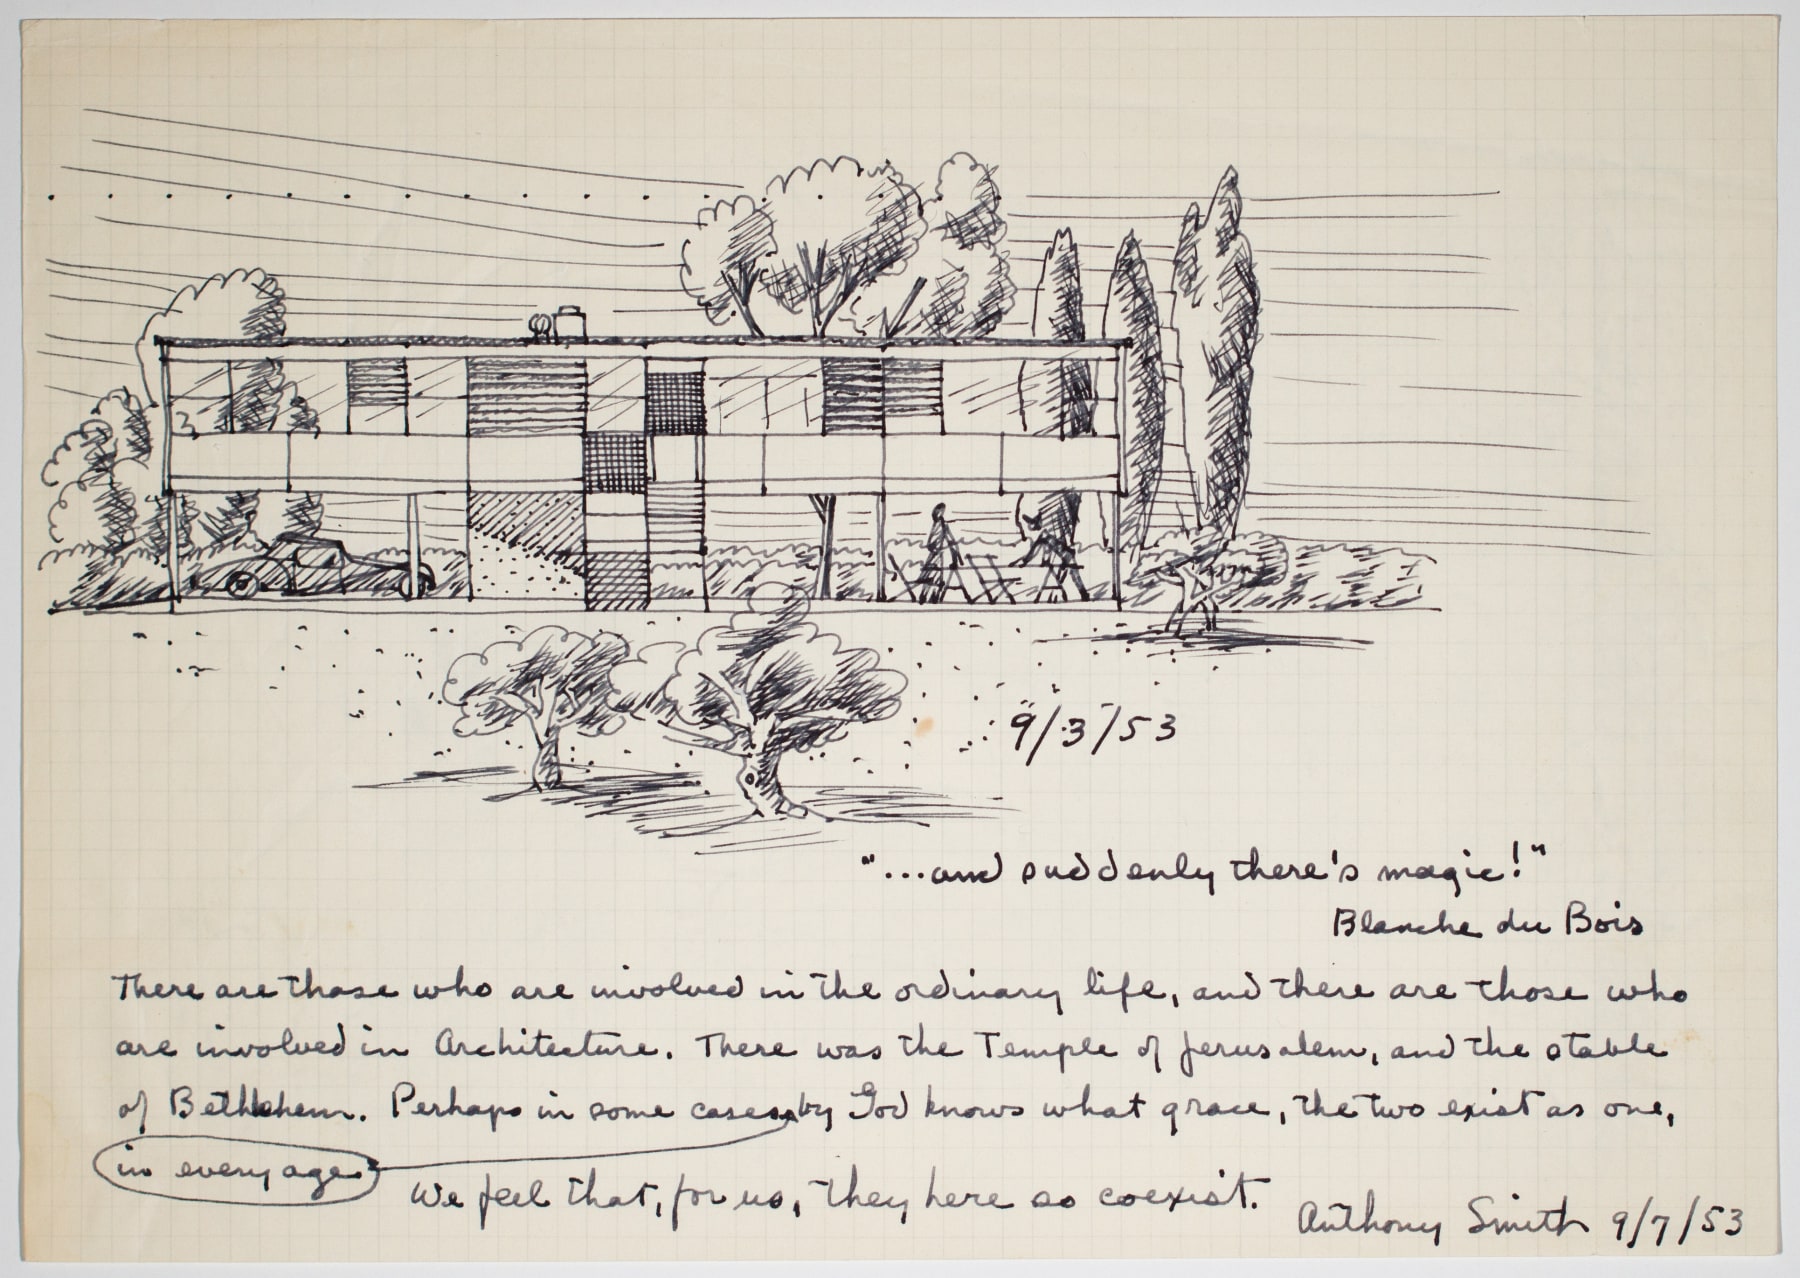 9/3/53
"...and suddenly there's magic!"
Blanche du Bois
There are those who are involved in the ordinary life, and there are those who
are involved in Architecture. There was the Temple of Jerusalem, and the stable
of Bethlehem. Perhaps in some cases by God knows what grace, the two exist as one,
in every age
We feel that, for us, they here so coexist.
Anthony Smith 9/7/53